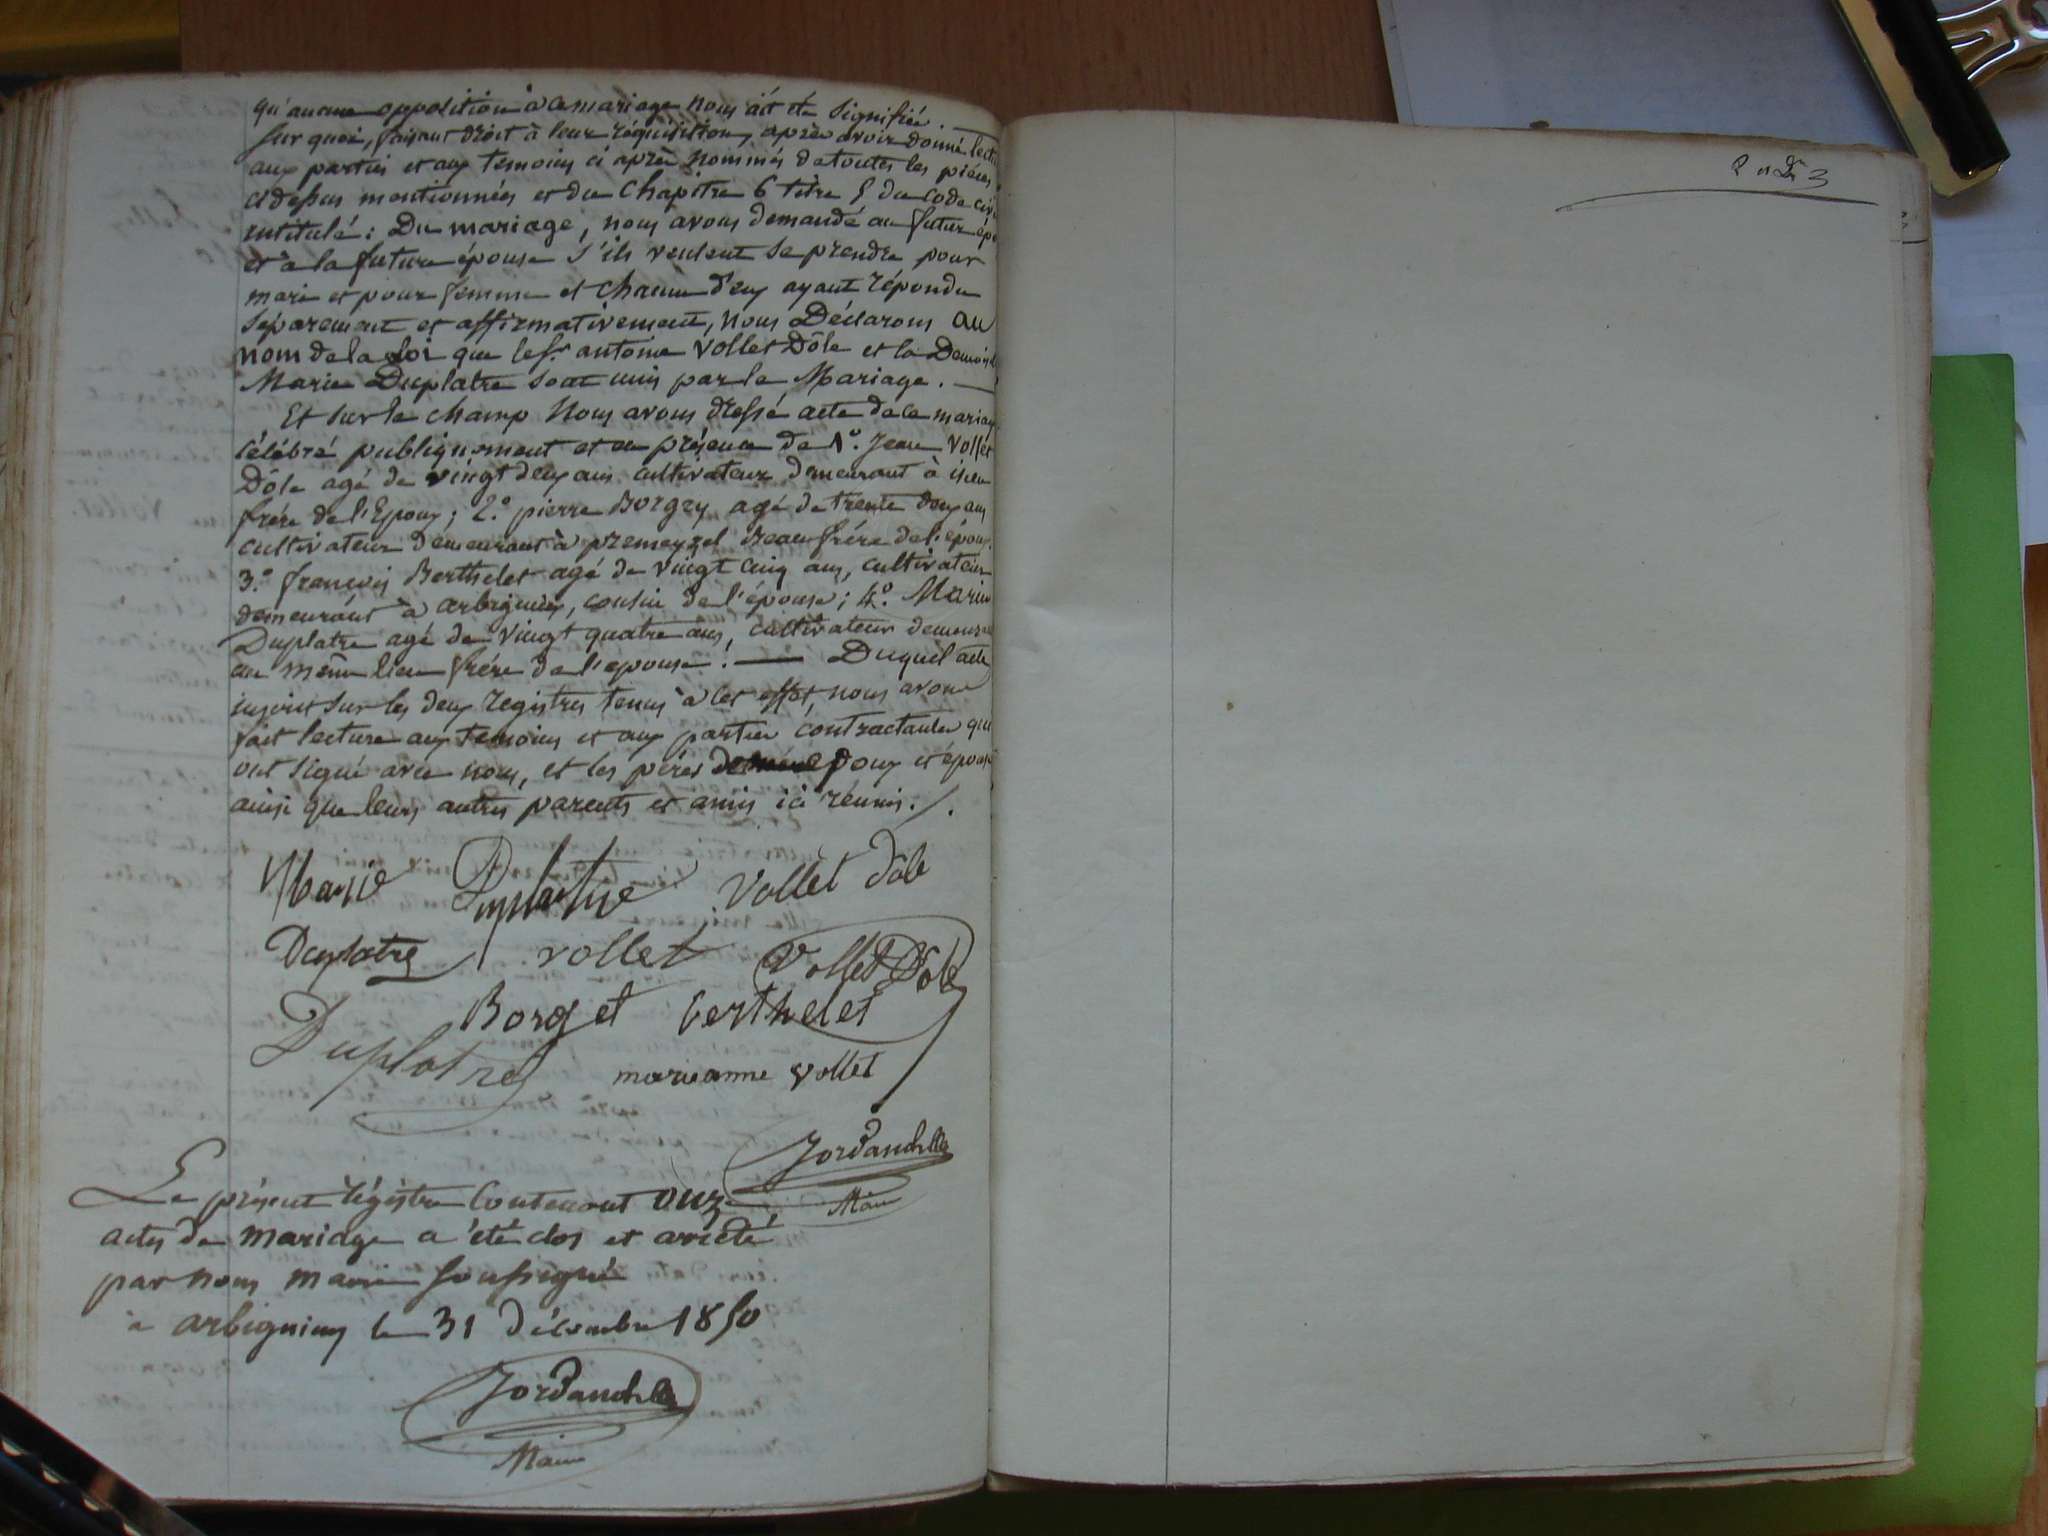 qu'aucune opposition à ce mariage nous ait été signifiée.
Sur quoi, faisant droit à leur réquisition, après avoir donné lectu
aux parties et aux temoins ci après nommés de toutes les pièces
ci dessus mentionnées et du Chapitre 6 titre 5 du Code civi
intitulé : Du mariage, nous avons demandé au futur épo
et à la future épouse s'ils veulent se prendre pour
mari et pour femme et chacun d'eux ayant répondu
séparement et affirmativement, nous Déclarons au
nom de la Loi que le Sr. antoine Vollet Dôle et la Demois
Marie Duplatre sont unis par le Mariage.
Et sur le champ Nous avons dressé acte de ce mariag
célébré publiquement et en présence de 1º. Jean Vollet
Dôle agé de vingt deux ans cultivateur demeurant à
frére de l'Epoux ; 2.º pierre Borgey agé de trente deux ans
cultivateur demeurant à premeyzel beau frére de l'époux.
3.º françois Berthelet agé de vingt cinq ans, cultivateur
demeurant à arbignieu, cousin de l'épouse ; 4º. Marin
Duplatre agé de vingt quatre ans, cultivateur demeura
au même lieu frére de l'epouse. — Duquel acte
inscrit sur les deux registres tenus à cet effet, nous avons
fait lecture aux temoins et aux parties contractantes qui
ont signé avec nous, et les péres époux et épouse
ainsi que leurs autres parents et amis ici réunis. /.
Marie Duplatre Vollet dole
Duplatre vollet Vollet Dole
Borget berthelet
Duplatre marianne vollet
Maire
Le présent régistre Contenant onze
actes de mariage a été clos et arrêté
par nous maire soussigné
à arbignieu le 31 Décembre 1850
Maire